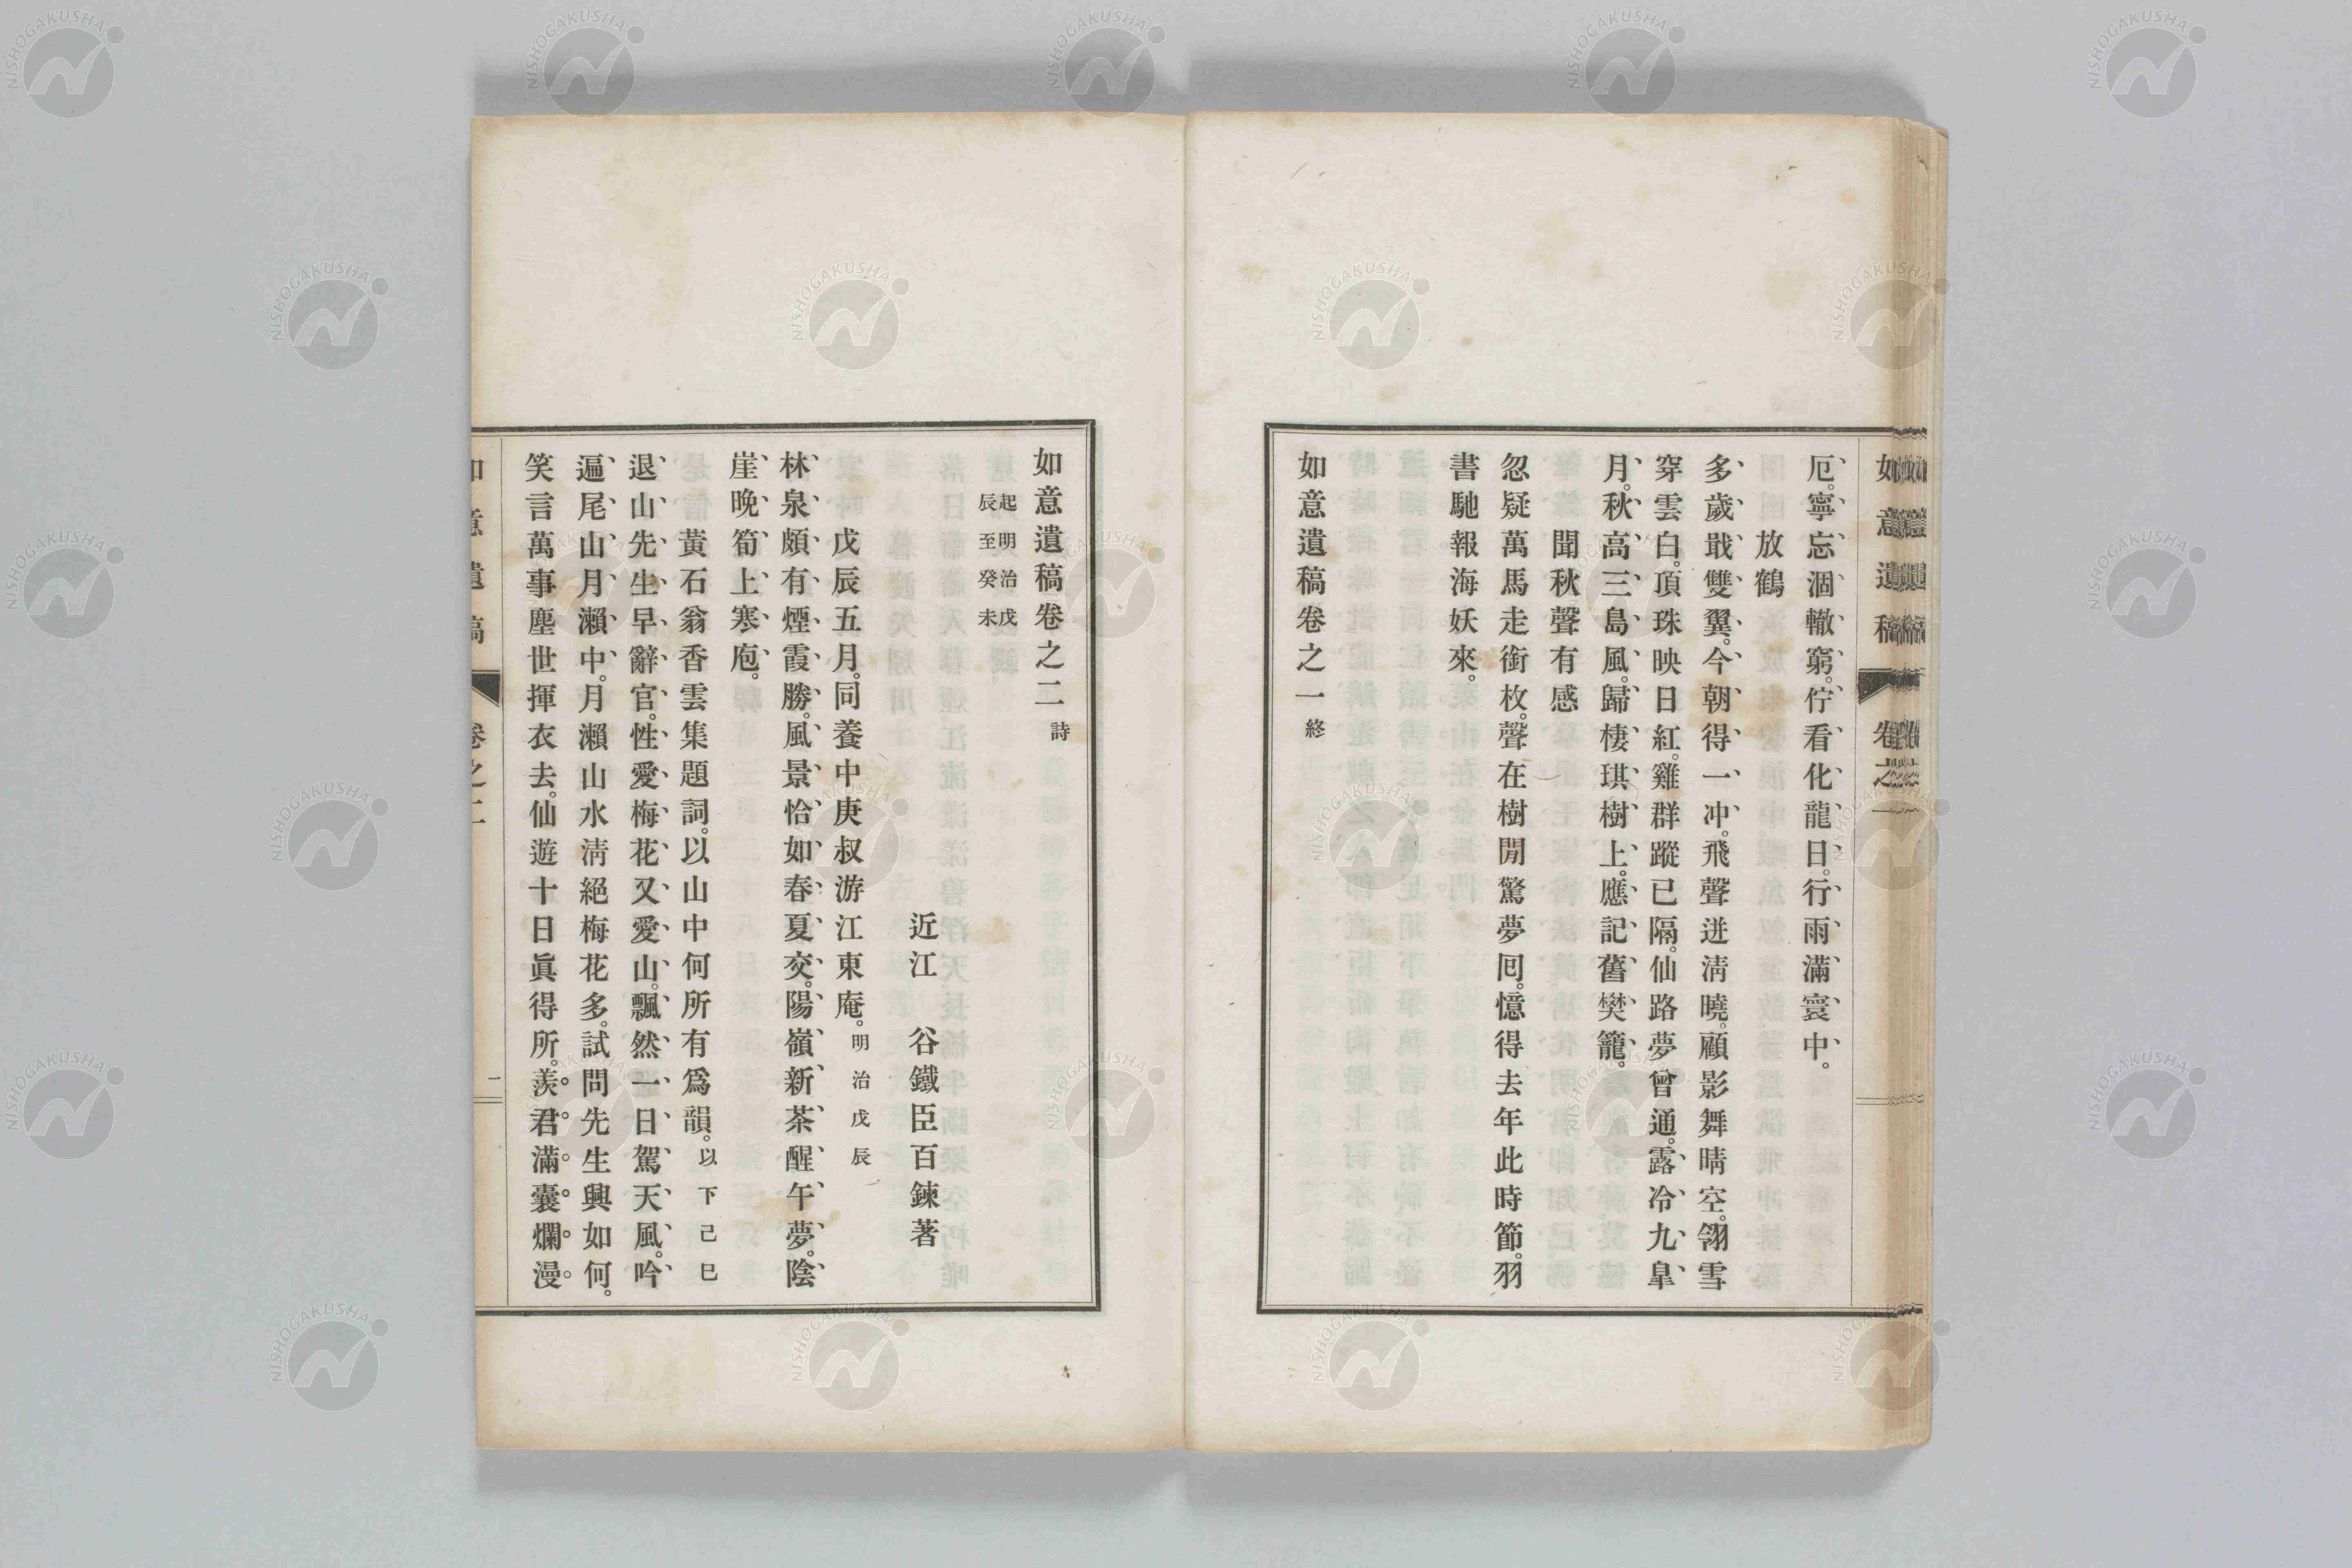 如意遺稿 卷之一
厄。寧忘涸轍窮。佇看化龍日。行雨滿寰中。
放鶴
多歲戢雙翼。今朝得一冲。飛聲迸淸曉。顧影舞晴空。翎雪
穿雲白。頂珠映日紅。雞群蹤已隔。仙路夢曾通。露冷九皐
月。秋高三島風。歸棲琪樹上。應記舊樊籠。
聞秋聲有感
忽疑萬馬走銜枚。聲在樹閒驚夢囘。憶得去年此時節。羽
書馳報海妖來。
如意遺稿卷之一 終
如意遺稿卷之二 詩
起明治戊
辰至癸未
近江 谷鐵臣百鍊著
戊辰五月。同養中庚叔游江東庵。明治戊辰
林泉頗有煙霞勝。風景恰如春夏交。陽嶺新茶醒午夢。陰
崖晚筍上寒庖。
黃石翁香雲集題詞。以山中何所有爲韻。以下己巳
退山先生早辭官。性愛梅花又愛山。飄然一日駕天風。吟
遍尾山月瀨中。月瀨山水淸絕梅花多。試問先生興如何。
笑言萬事塵世揮衣去。仙遊十日眞得所。羨君滿囊爛漫
如意遺稿 卷之二 一
NISHOGAKUSHA